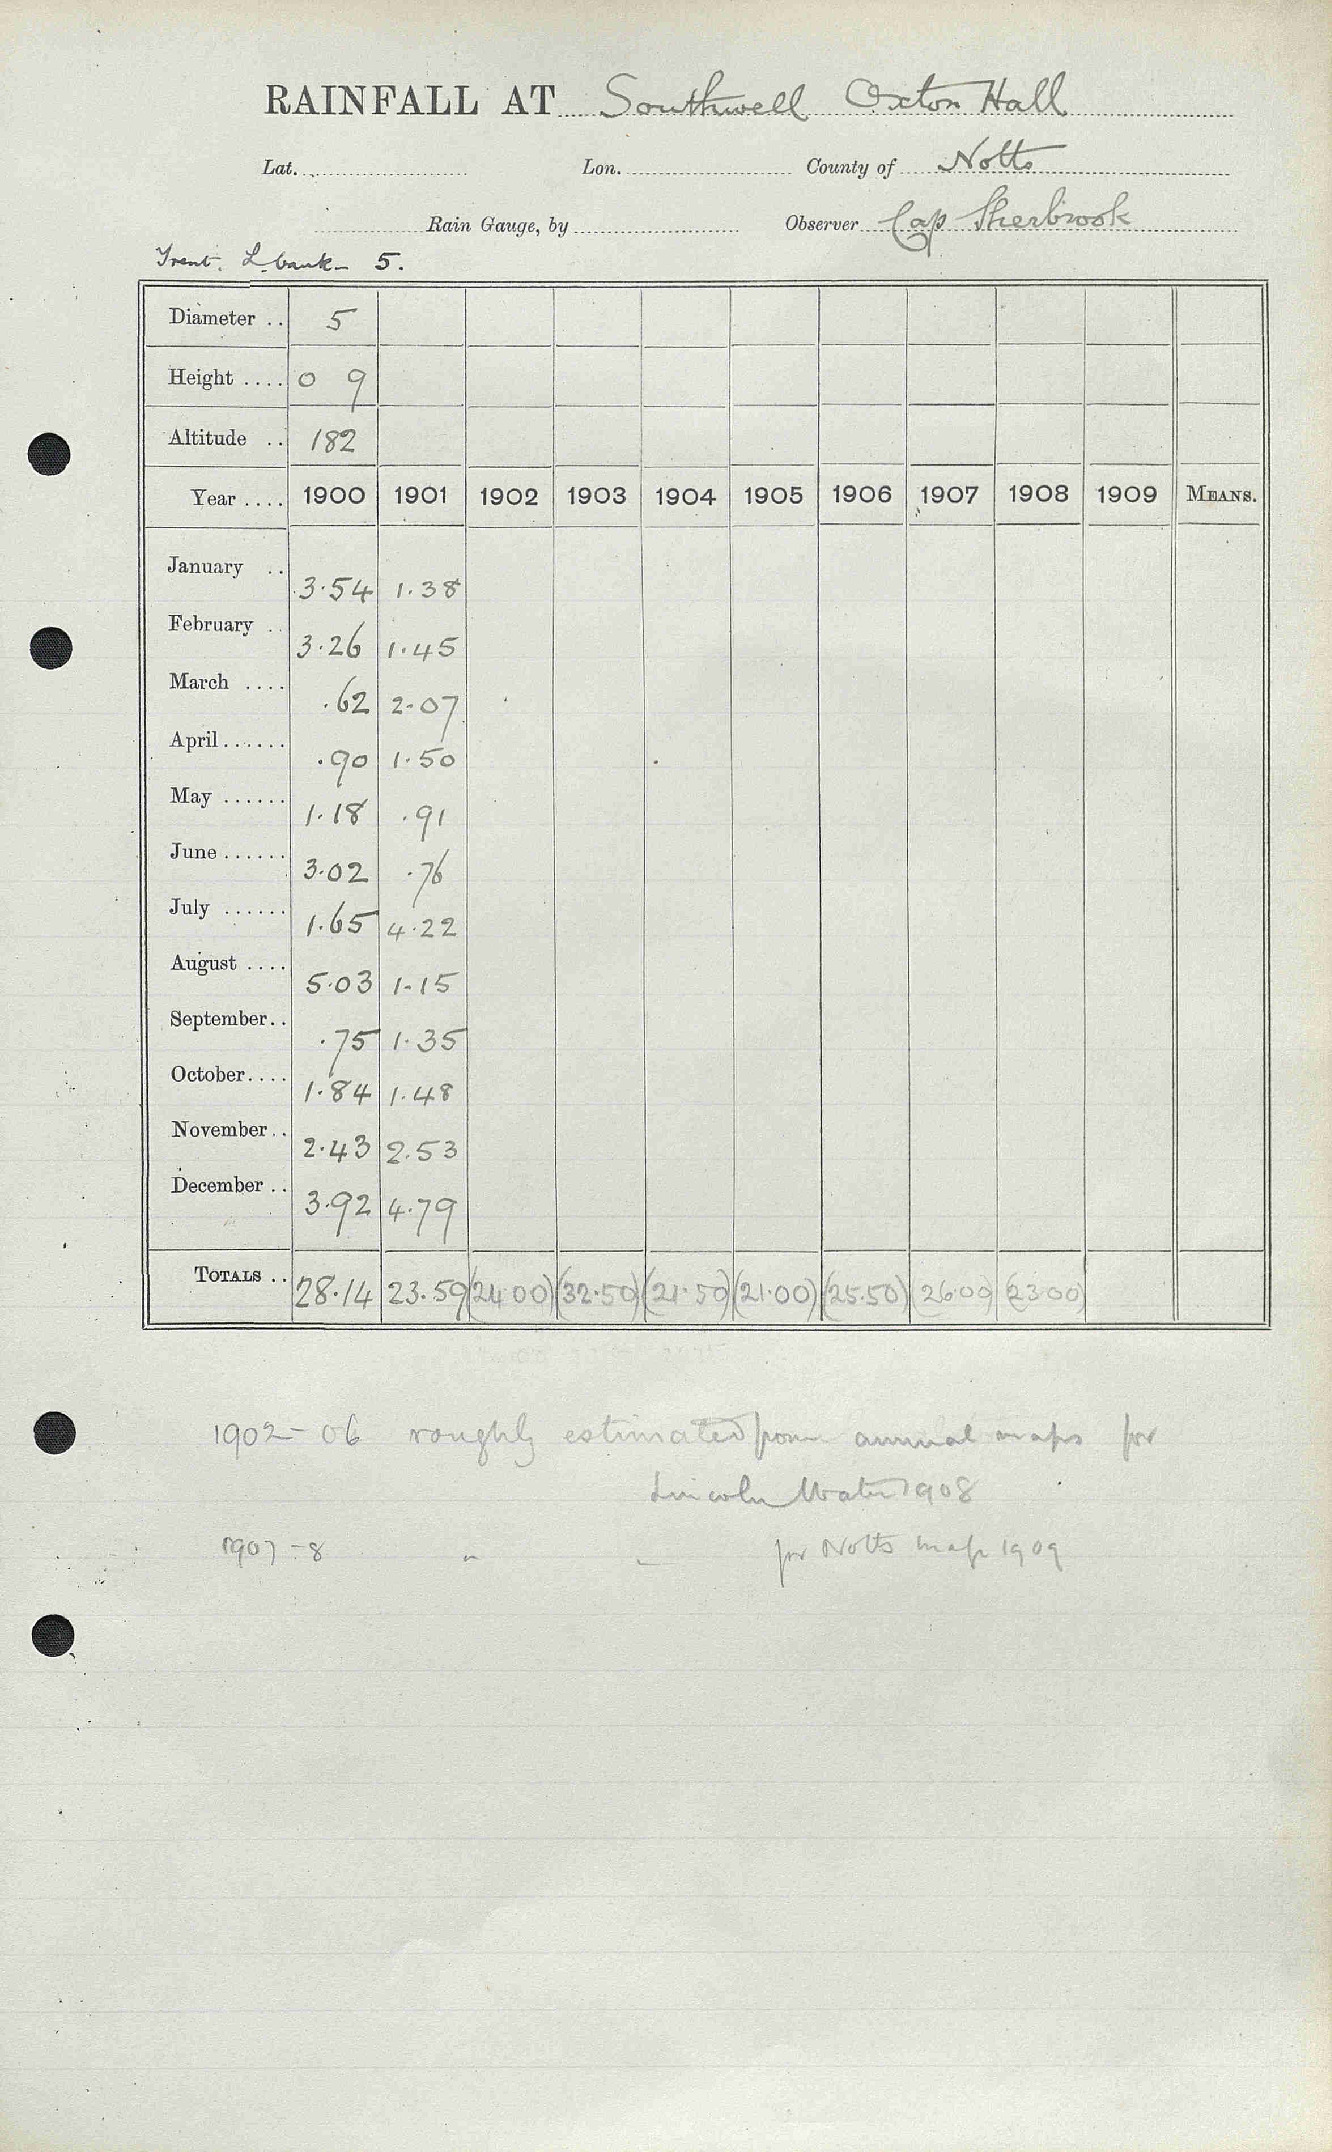 RAINFALL AT Southwell Oxton Hall
Lat. Lon. County of Notts
Rain Gauge, by Observer Cap Sherbrook
Trent. L. bank - 5.
Diameter .. 5
Height .... 0 9
Altitude .. 182
Year .... 1900 1901 1902 1903 1904 1905 1906 1907 1908 1909 MEANS.
January .. 3.54 1.38
February .. 3.26 1.45
March .... .62 2.07
April ...... .90 1.50
May ...... 1.18 .91
June ...... 3.02 .76
July ...... 1.65 4.22
August .... 5.03 1.15
September.. .75 1.35
October.... 1.84 1.48
November.. 2.43 2.53
December .. 3.92 4.79
TOTALS .. 28.14 23.59 (24.00) (32.50) (21.50) (21.00) (25.50) (26.00) (23.00)
1902-06 roughly estimated from annual maps for
Lincoln Water 1908
1907-8 " " for Notts map 1909